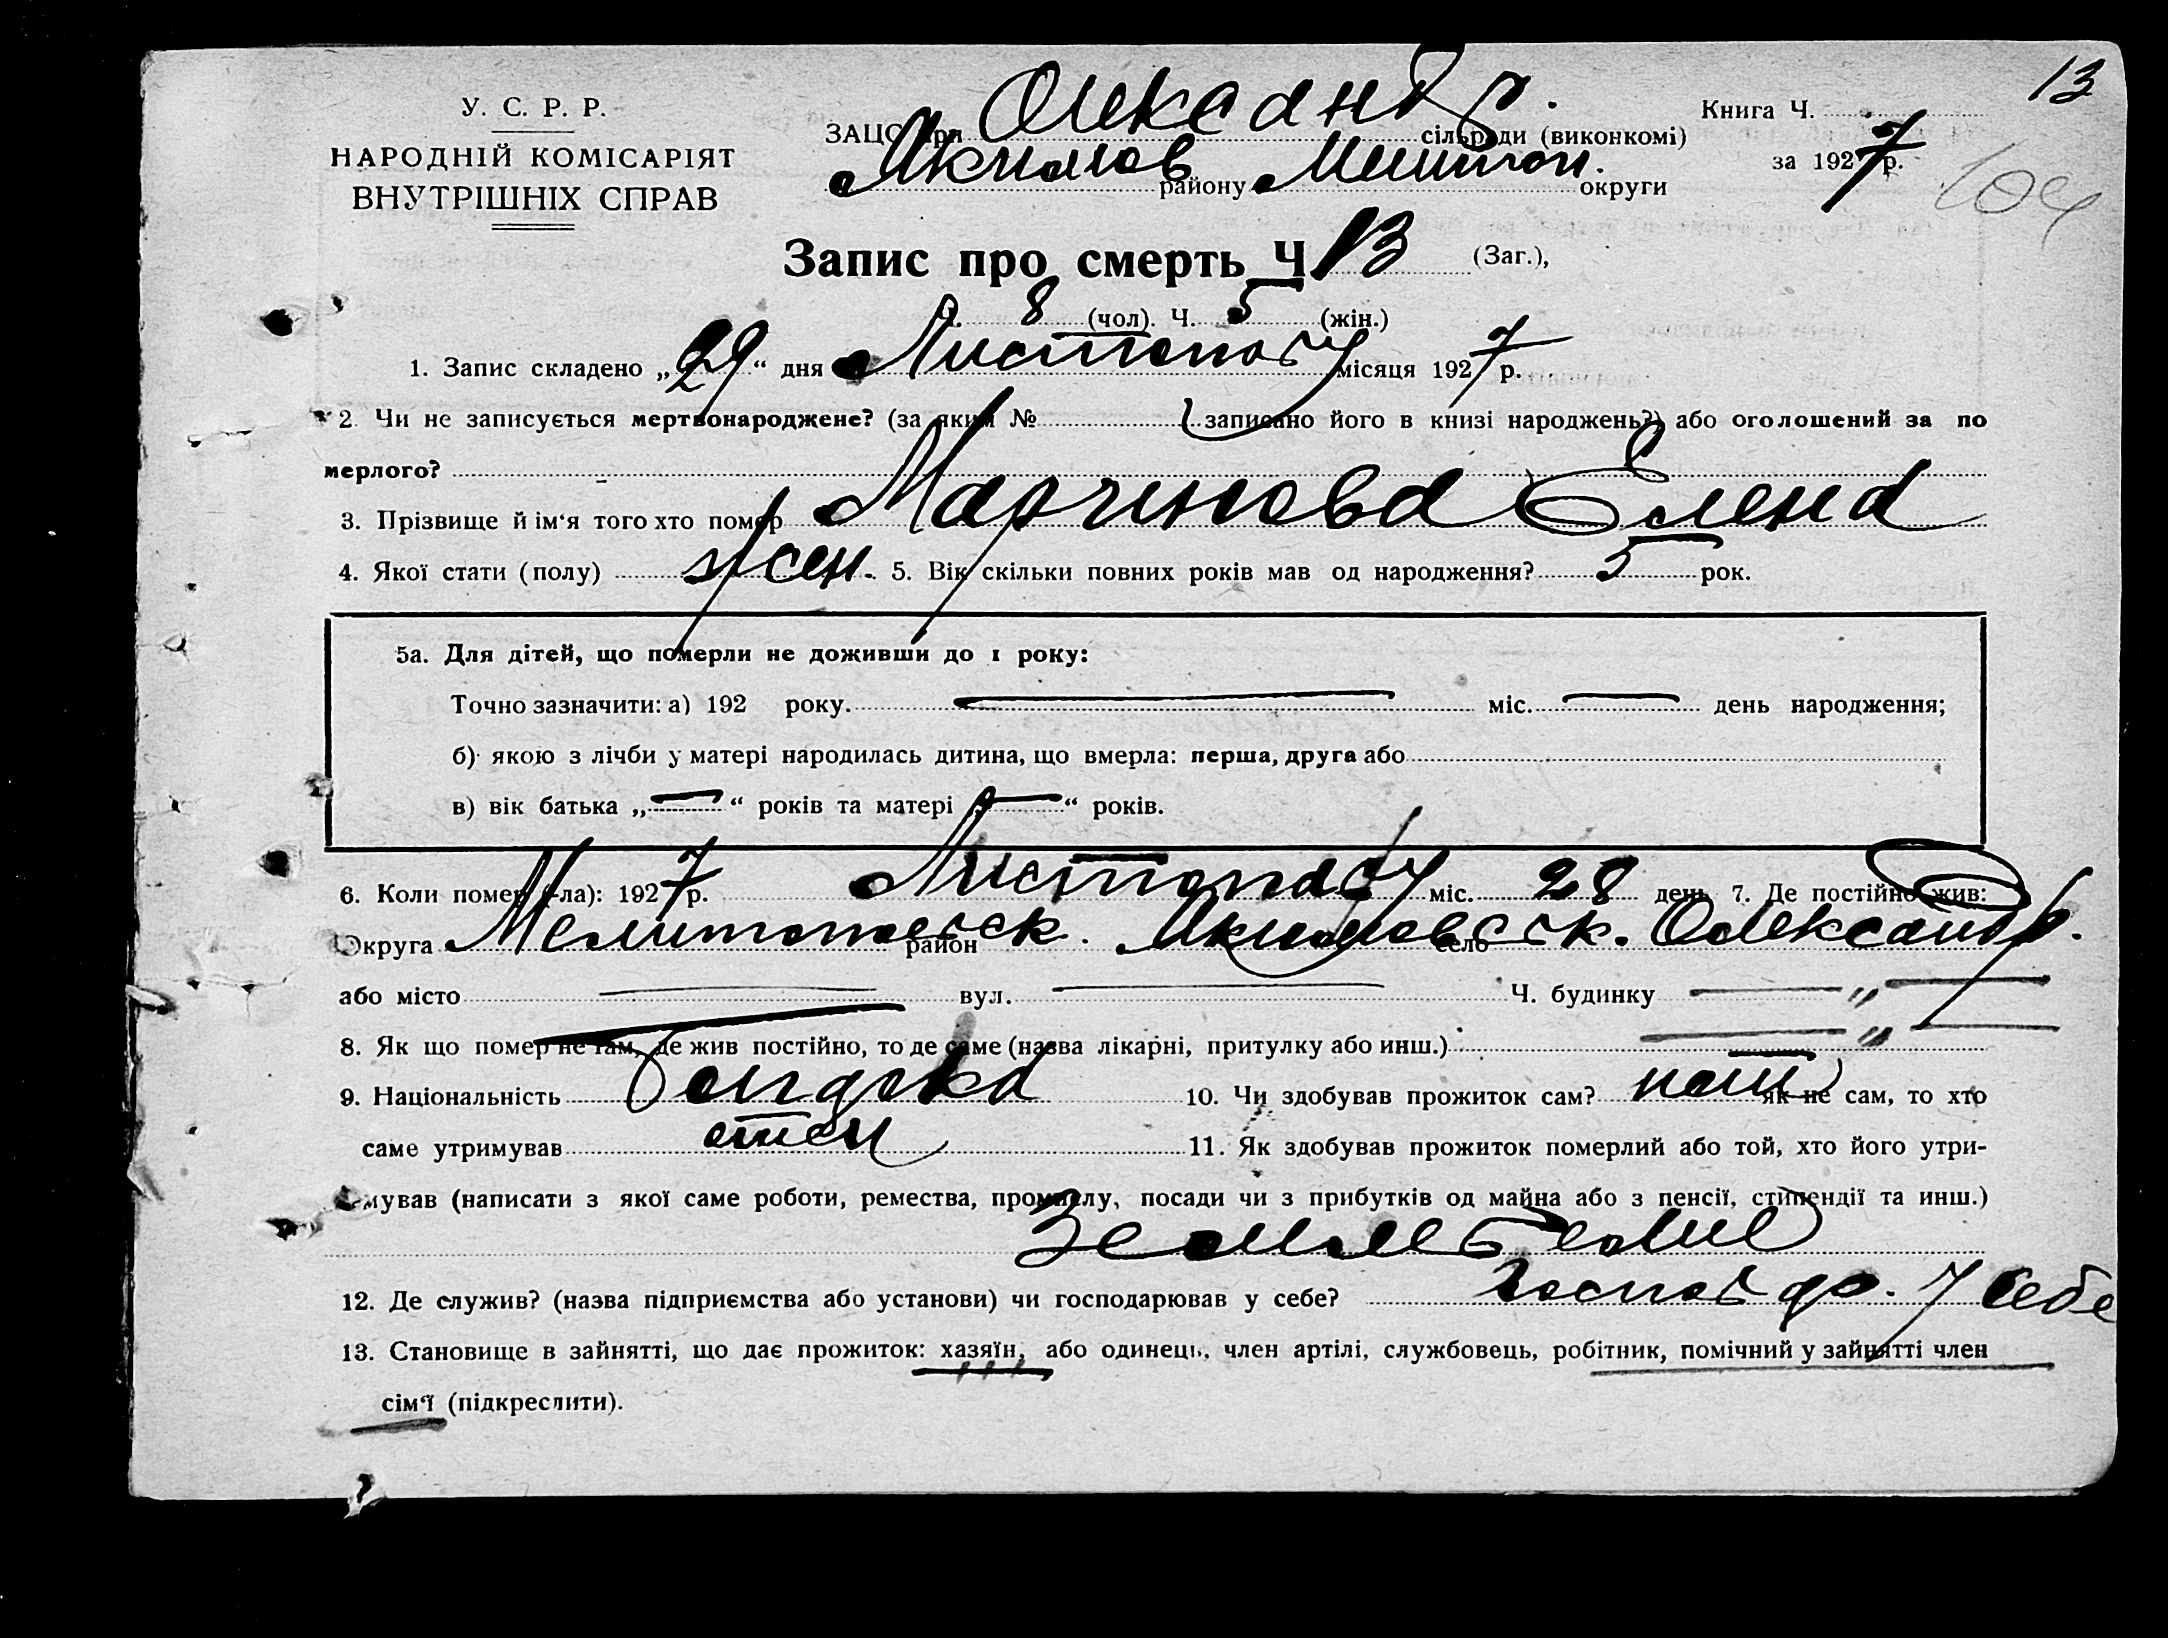 13
У. С. Р. Р.
НАРОДНІЙ КОМІСАРІЯТ
ВНУТРІШНІХ СПРАВ
ЗАЦС при Олександр. сільради (виконкомі)
Якимов району Мелитоп. округи
Книга Ч.
за 1927 р.
104
Запис про смерть Ч 13 (Заг.),
Ч. 8 (чол). Ч. 5 (жін.)
1. Запис складено „29“ дня Листопаду місяця 1927 р.
2. Чи не записується мертвонароджене? (за яким № записано його в книзі народжень?) або оголошений за по
мерлого?
3. Прізвище й ім‘я того хто помер Марчукова Елена
4. Якої стати (полу) жен. 5. Вік скільки повних років мав од народження? 5 рок.
5а. Для дітей, що померли не доживши до 1 року:
Точно зазначити: а) 192 року. міс. день народження;
б) якою з лічби у матері народилась дитина, що вмерла: перша, друга або
в) вік батька „ “ років та матері „ “ років.
6. Коли помер (-ла): 1927 р. Листопаду міс. 28 день 7. Де постійно жив:
Округа Мелитопольск. район Якимовськ. село Олександр.
або місто вул. Ч. будинку
8. Як що помер не там, де жив постійно, то де саме (назва лікарні, притулку або инш.)
9. Національність 10. Чи здобував прожиток сам? як не сам, то хто
саме утримував отец 11. Як здобував прожиток померлий або той, хто його утри-
мував (написати з якої саме роботи, ремества, промислу, посади чи з прибутків од майна або з пенсії, стипендії та инш.)
12. Де служив? (назва підприємства або установи) чи господарював у себе? господар. у себе
13. Становище в зайнятті, що дає прожиток: хазяїн, або одинець, член артілі, службовець, робітник, помічний у зайнятті член
сім‘ї (підкреслити).